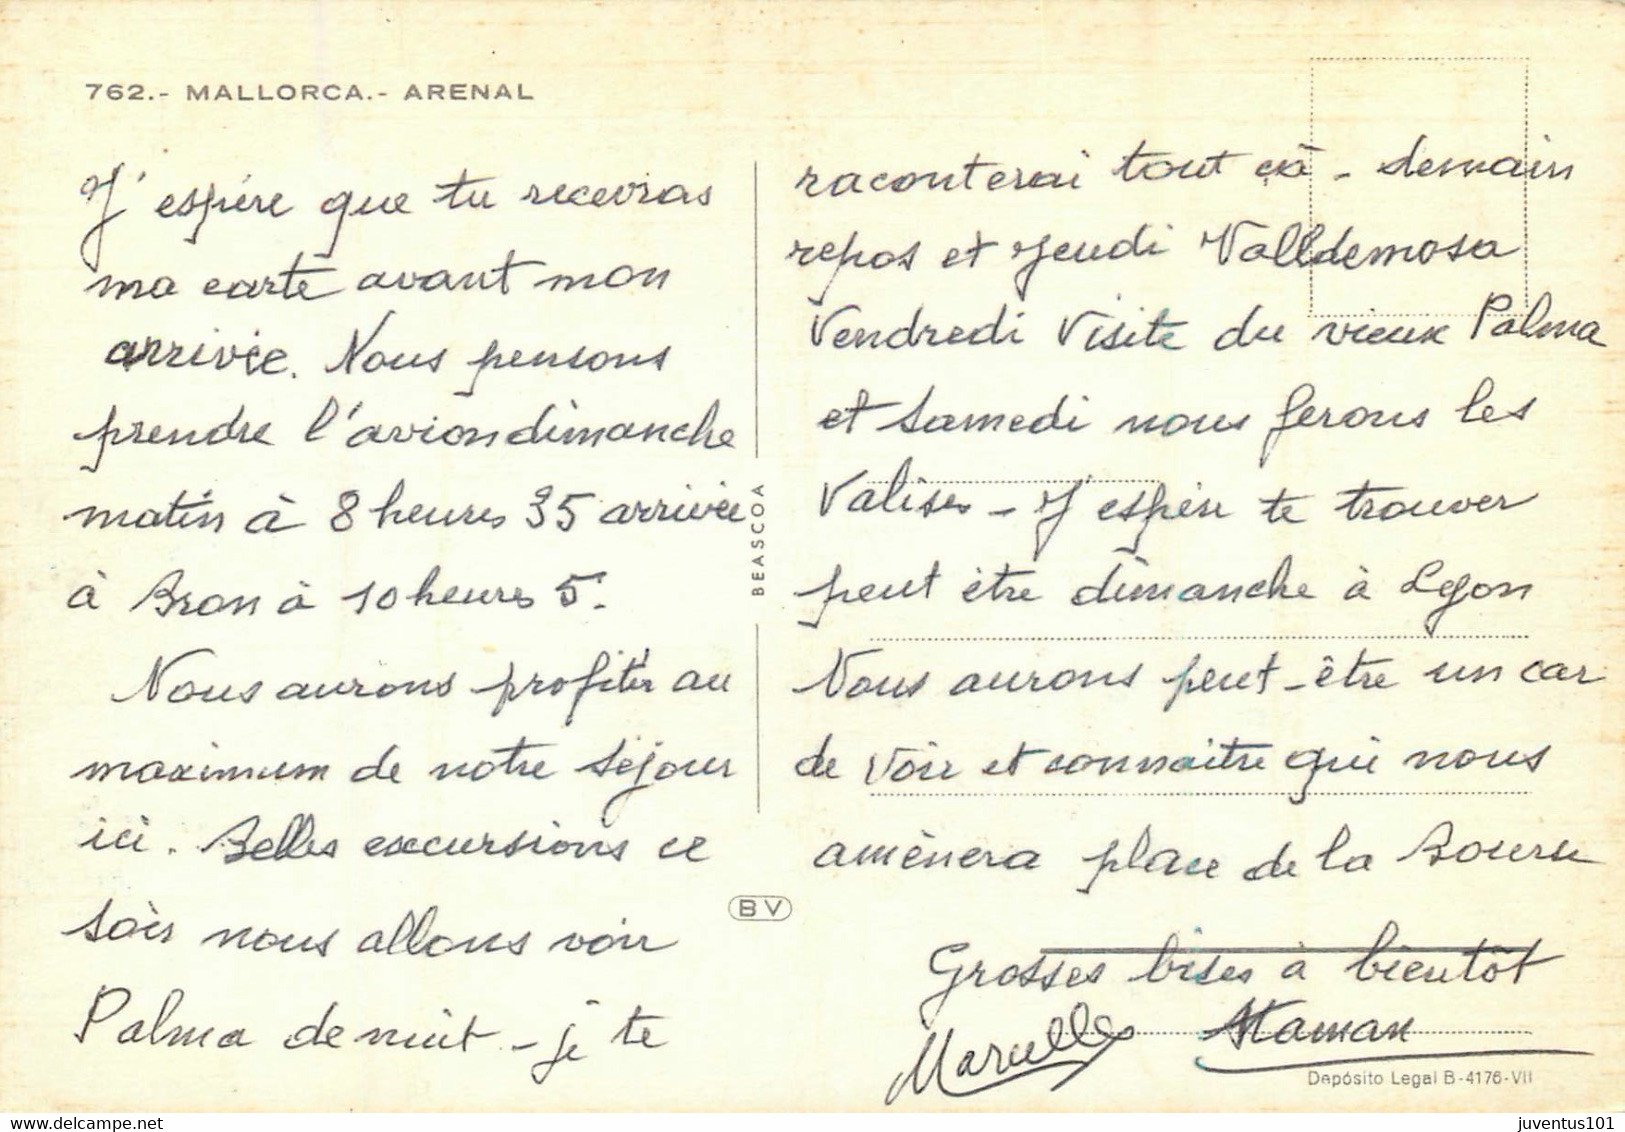 762.- MALLORCA.- ARENAL
J'espére que tu recevras
ma carte avant mon
arrivée. Nous pensons
prendre l'avion dimanche
matin à 8 heures 35 arrivée
à Bron à 10 heures 5.
Nous aurons profiter au
maximum de notre séjour
ici. Belles excursions ce
soir nous allons voir
Palma de nuit - je te
BEASCOA
BV
raconterai tout çà - demain
repos et Jeudi Valldemosa
Vendredi Visite du vieux Palma
et Samedi nous ferons les
Valises - J'espère te trouver
peut être dimanche à Lyon
Nous aurons peut-être un car
de voir et connaitre qui nous
amènera place de la Bourse
Grosses bises à bientôt
Marcelle Maman
Depósito Legal B-4176-VII
juventus101